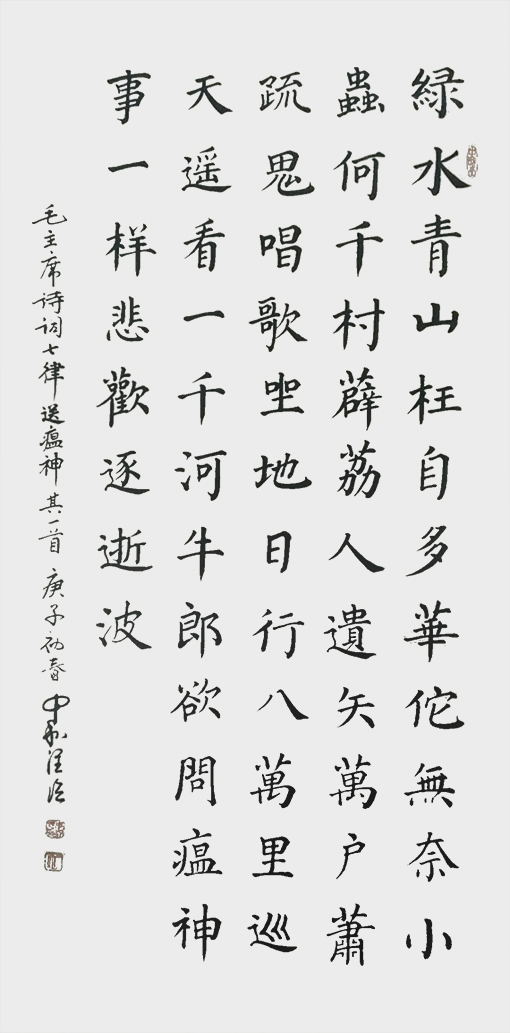 緑水青山枉自多華佗無奈小
蟲何千村薜荔人遺矢萬户蕭
疏鬼唱歌坐地日行八萬里巡
天遥看一千河牛郎欲問瘟神
事一样悲歡逐逝波
毛主席诗词七律送瘟神其一首 庚子初春